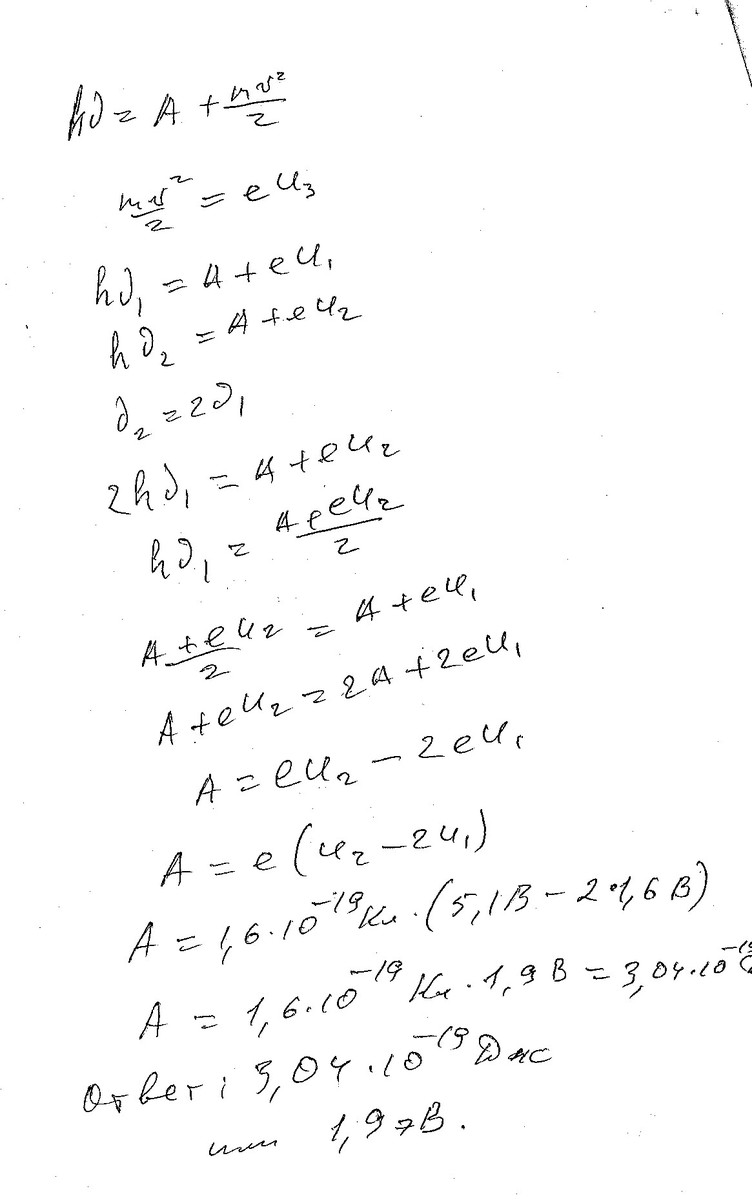 hν = A + mv²/2
mv²/2 = eU₃
hν₁ = A + eU₁
hν₂ = A + eU₂
ν₂ = 2ν₁
2hν₁ = A + eU₂
hν₁ = A + eU₂/2
A + eU₂/2 = A + eU₁
A + eU₂ = 2A + 2eU₁
A = eU₂ − 2eU₁
A = e(U₂ − 2U₁)
A = 1,6·10⁻¹⁹ Кл·(5,1В − 2·1,6В)
A = 1,6·10⁻¹⁹ Кл·1,9В = 3,04·10⁻¹⁹
Ответ: 3,04·10⁻¹⁹ Дж
или 1,9эВ.